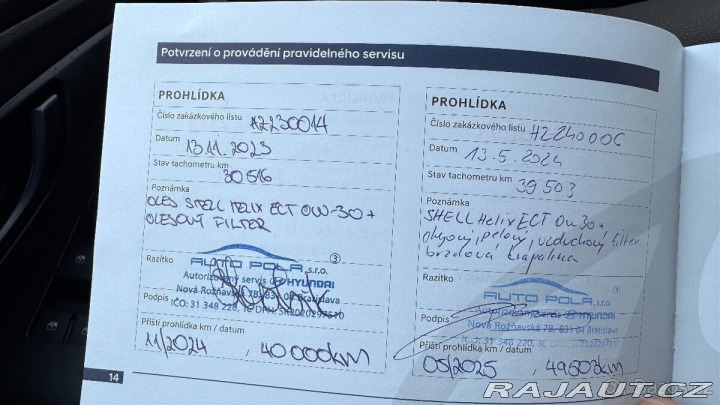 Potvrzení o provádění pravidelného servisu
PROHLÍDKA
Číslo zakázkového listu HZ230014
Datum 13.11.2023
Stav tachometru km 30516
Poznámka
OLEJ SHELL HELIX ECT 0W-30 +
OLEJOVÝ FILTER
Razítko
AUTO POLA s.r.o. ③
Autorizovaný servis HYUNDAI
Nová Rožňavská 7B, 831 04 Bratislava
Podpis IČO: 31 348 220, IČ DPH:
Příští prohlídka km / datum
11/2024, 40 000km
14
PROHLÍDKA
Číslo zakázkového listu HZ240006
Datum 13.5.2024
Stav tachometru km 39503
Poznámka
SHELL Helix ECT 0w30+
olejový, pelový, vzduchový filter
brzdová kvapalina
Razítko
AUTO POLA s.r.o. ①
Autorizovaný servis HYUNDAI
Podpis Nová Rožňavská 7B, 831 04 Bratislava
31 348 220, IČ DPH:
Příští prohlídka km / datum
05/2025, 49503km
RAJAUT.CZ